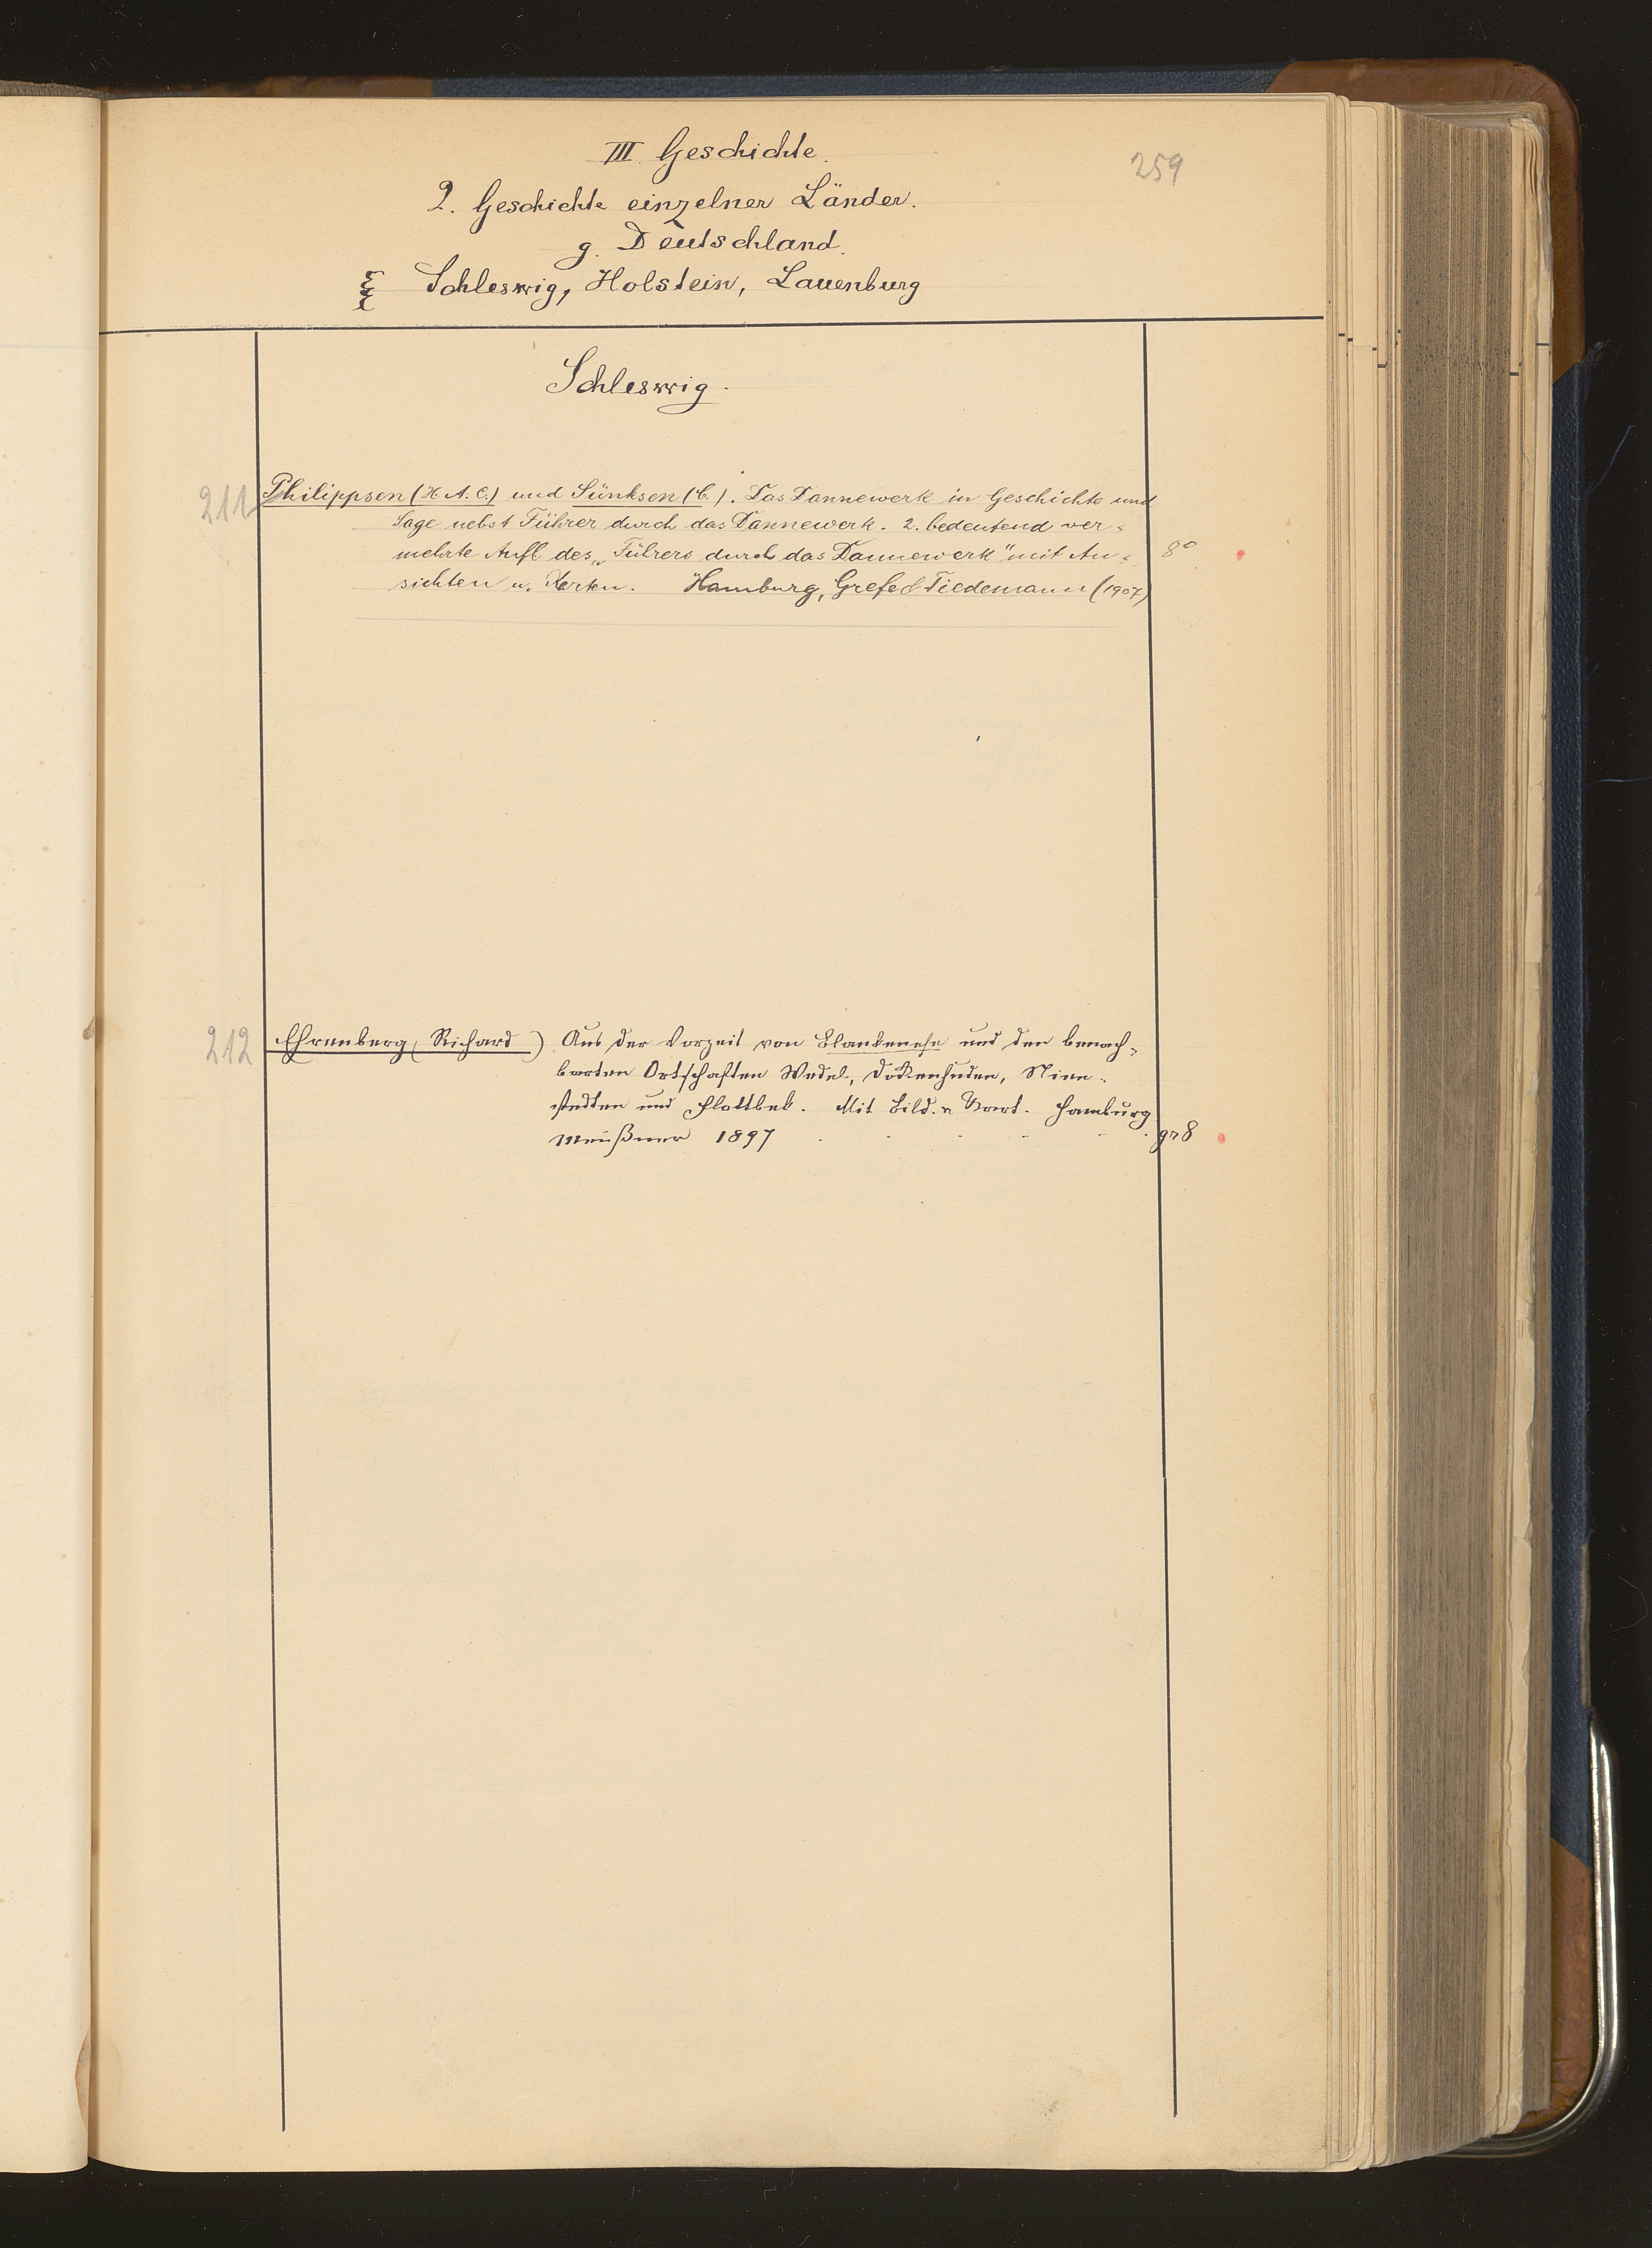 III. Geschichte.
259
2. Geschichte einzelner Länder.
g. Deutschland.
ξξ Schleswig, Holstein, Lauenburg
Schleswig.
211 Philippsen (H. A. C.) und Sünksen (C.). Das Dannewerk in Geschichte und
Sage nebst Führer durch das Dannewerk. 2. bedeutend ver-
mehrte Aufl des „Führers durch das Dannewerk" mit An- 8°
sichten u. Karten. Hamburg, Grefe & Tiedemann (1907)
212 Ehrenberg (Richard) Aus der Vorzeit von Blankenese und den benach-
barten Ortschaften Wedel, Dockenhuden, Nien-
stedten und Flottbek. Mit Bild. u Kart. Hamburg
Meißner 1897 . . . . . . gr 8